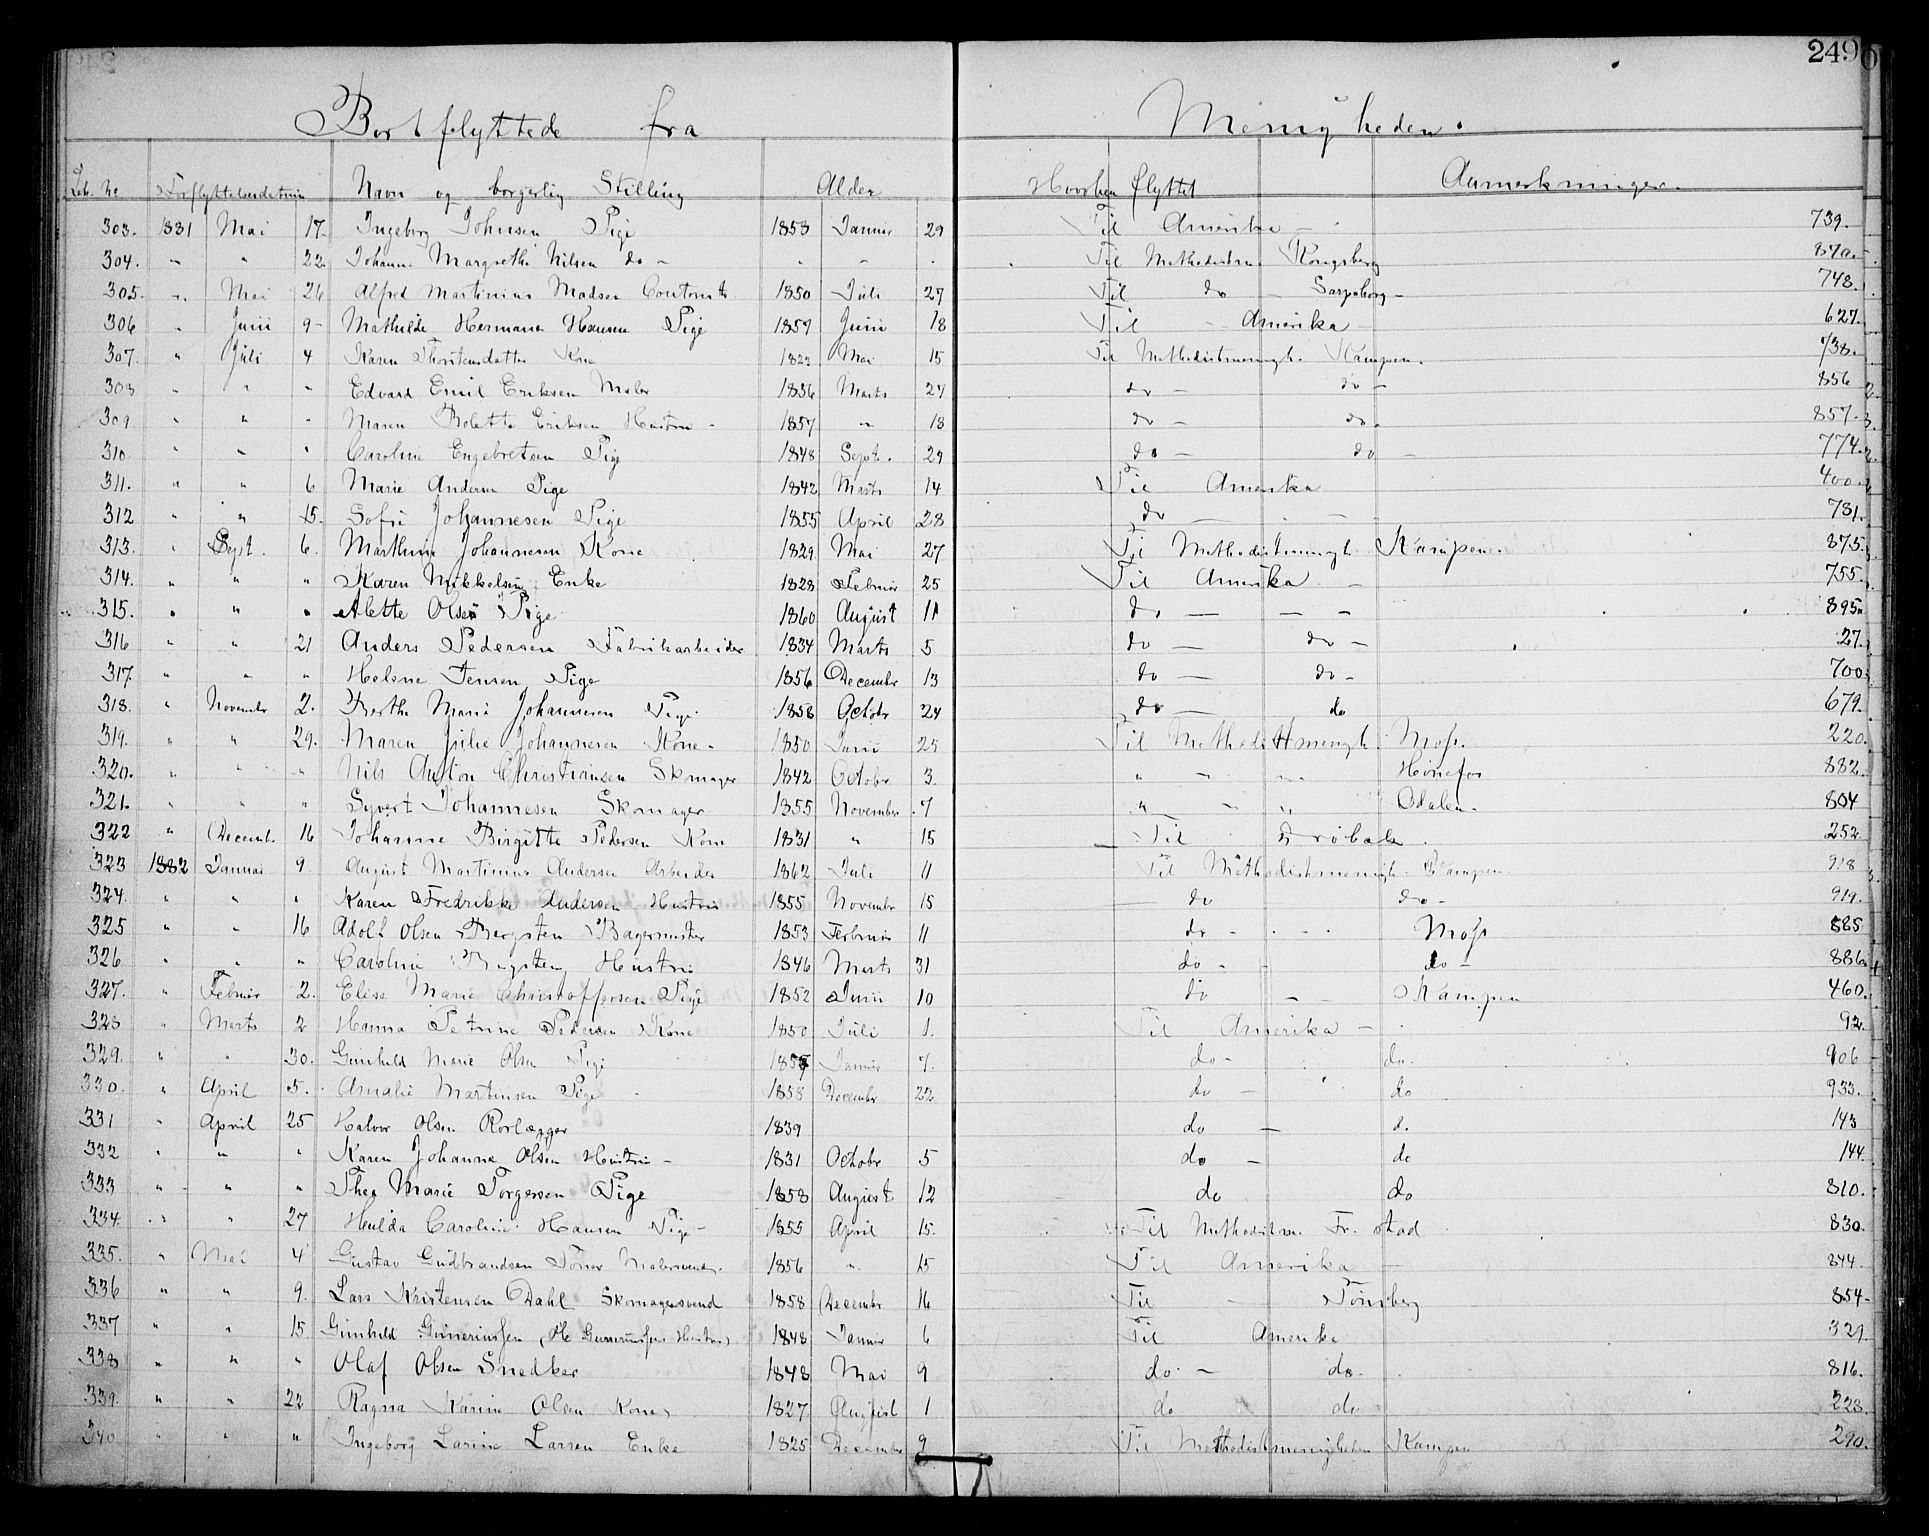 249
Bortflyttede fra Menigheden.
Løb. No Forflyttelsesdatum Navn og borgerlig Stilling Alder Hvorhen flyttet Anmerkninger
303. 1881 Mai 17. Ingeborg Johnsen Pige 1853 Januar 29 Til Amerika — 739.
304. " " 22 Johanne Margrethe Nilsen do - " " . Til Methodistm. Kongsberg 870.
305. " Mai 26 Alfred Martinius Madsen 1850 Juli 27 Til do Sarpsborg - 748.
306 " Juni 9 - Mathilde Hermana Hansen Pige 1859 Juni 18 Til - Amerika - 627.
307. " Juli 4 Karen Thorstensdatter Kone 1823 Mai 15 Til Methodistmenigh. Kampen. 738.
308 " " " Edvard Emil Eriksen Maler 1856 Marts 27 do - do - 856
309 " " " Maren Bolette Eriksen Hustru - 1857 " 18 do - do. 857.
310 " " " Caroline Engebretsen Pige 1848 Sept. 29 do - do - 774.
311. " " 6 Marie Andersen Pige 1842 Marts 14 Til Amerika 400.
312 " " 15. Sofie Johannesen Pige 1855 April 28 do — - - 781.
313. " Sept. 6. Marthine Johannesen Kone 1829 Mai 27 Til Methodistmenigh. Kampen. 875.
314. " " " Karen Mikkelsen Enke 1823 Februar 25 Til Amerika — 755.
315. " " " Alette Olsen Pige 1860 August 11 do — - - 895
316 " " 21 Anders Pedersen Fabrikarbeider 1834 Marts 5 do — do - 27.
317. " " " Helene Jensen Pige 1856 December 13 do — do - 700
318. " November 2. Berthe Marie Johannesen Pige 1858 October 24 do — do 679.
319. " " 29. Maren Julie Johannesen Kone - 1850 Juni 25 Til Methodistmenigh. Moss. 220.
320. " " " Nils Anton Christiansen Skomager 1842 October 3. " " " Hønefos 882.
321. " " " Syvert Johannesen Skomager 1855 November 7 " " " Odalen. 804
322 " Decemb. 16 Johanne Birgitte Pedersen Kone 1831 " 15 Til Drøbak 252.
323 1882 Januar 9. August Martinius Andersen Arbeider 1862 Juli 11 Til Methodistmenigh. Kampen 918
324. " " " Karen Fredrikke Andersen Hustru 1855 November 15 do do - 919.
325 " " 16 Adolf Olsen Bergsten Bagermester 1853 Februar 11 do - Moss 885
326 " " " Caroline Bergsten Hustru 1846 Marts 31 do - do - 886.
327. " Februar 2. Elise Marie Christoffersen Pige 1852 Juni 10 do - - Kampen 460.
328 " Marts 2 Hanna Petrine Pedersen Kone 1850 Juli 1. Til Amerika - 92.
329. " " 30. Gunhild Marie Olsen Pige Januar 7. do - do. 906
330. " April 5. Amalie Martinsen Pige 1858 December 22 do - do 933.
331 " April 25 Halvor Olsen Rørlægger 1839 do — d. 143
332 " " " Karen Johanne Olsen Hustru - 1831 October 5 do - do 144.
333 " " " Thea Marie Torgersen Pige 1858 August 12 do do 810.
334. " " 27 Hulda Caroline Hansen Pige - 1855 April 15. Til Methodistm. Fr. stad 830.
335. " Mai 4 Gustav Gudbrandsen Malersvend. 1856 " 15 Til Amerika - 844.
336 " " 9. Lars Kristensen Dahl Skomagersvend 1858 December 16 Til - Tønsberg 854
337 " " 15 Gunhild Guneriussen (H. Gunerinssens Hustru) 1848 Januar 6 Til Amerika 329.
338 " " " Olaf Olsen Snedker 1848 Mai 9 do - do. 816.
339. " " 22 Ragna Karine Olsen Kone 1827 August 1 do do 228.
340 " " " Ingeborg Larine Larsen Enke 1825 December 9 Til Methodistmenigheden Kampen 290.